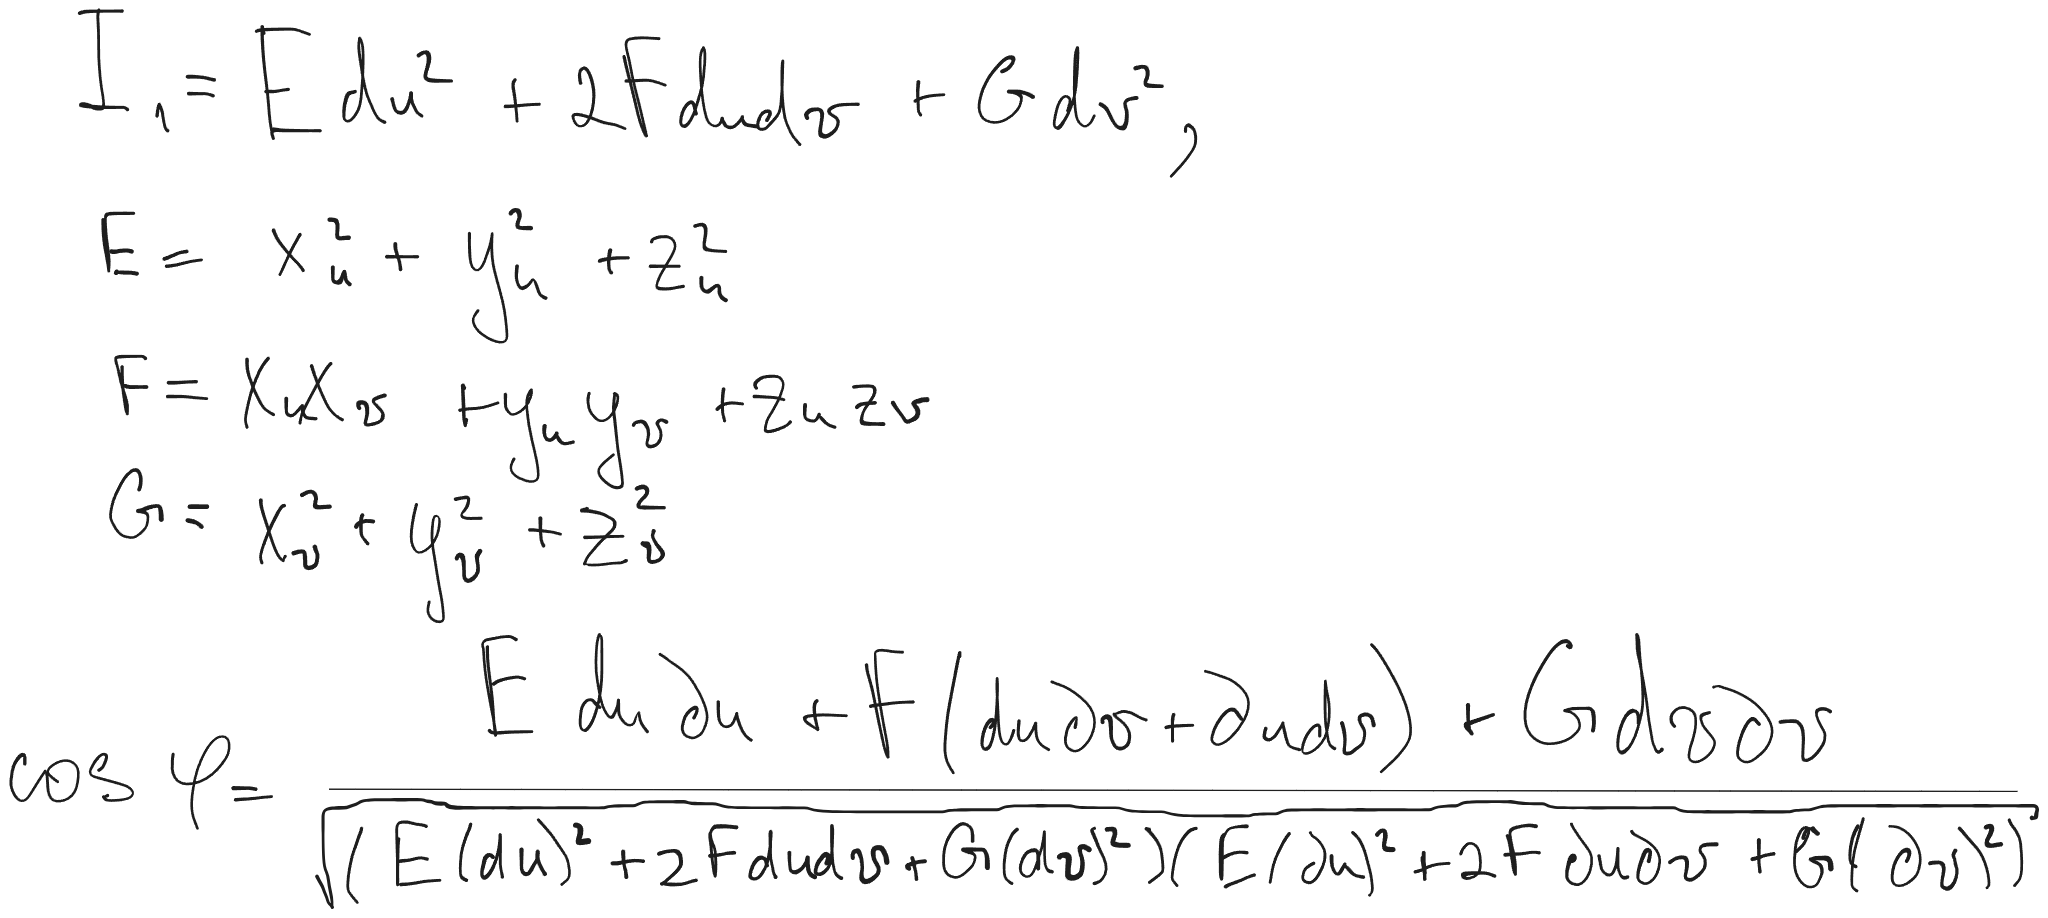 I₁ = E du² + 2F du dv + G dv²,
E = x_u² + y_u² + z_u²
F = x_u x_v + y_u y_v + z_u z_v
G = x_v² + y_v² + z_v²
cos φ = (E du ∂u + F(du ∂v + ∂u dv) + G dv ∂v) / √((E(du)² + 2F du dv + G(dv)²)(E(∂u)² + 2F ∂u ∂v + G(∂v)²))